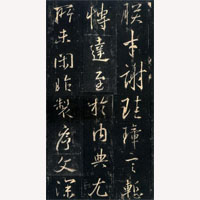 朕才謝珪璋言慚
博達至於內典尤
所未閑昨製序文深